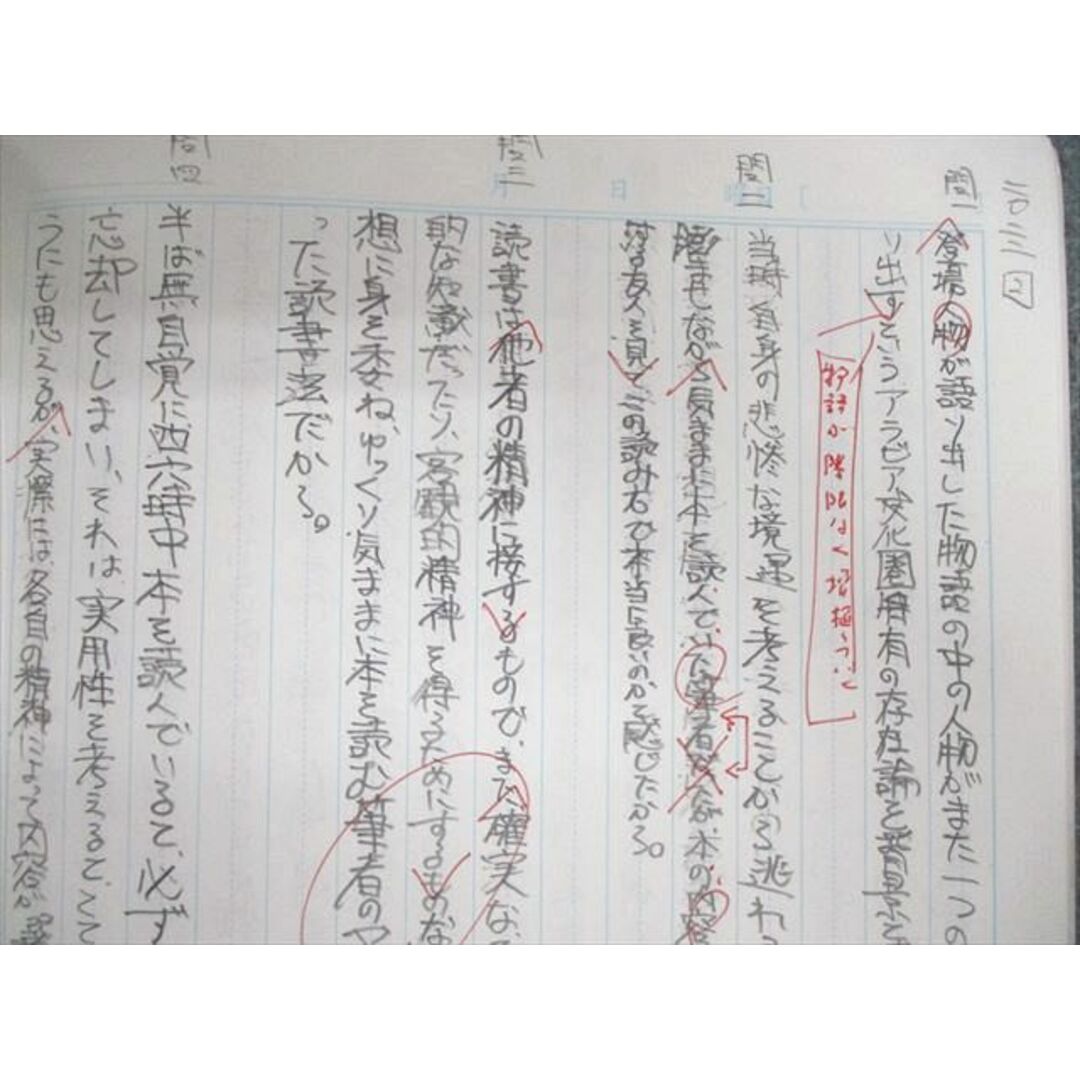 二〇二二 2
問一
登場人物が語り出した物語の中の人物がまた一つの
り出すというアラビア文化圏特有の存在論を背景と
物語が際限なく増殖
問二
当時自身の悲惨な境遇を考えることから逃れ
ませながら気ままに本を読んでいた筆者だが本の内容
友人を見てこの読み方で本当に良いのかと感じたから。
問三
読書は他者の精神に接するもので、また確実な、
的な知識だったり、客観的精神を得るためにするものな
想に身を委ね、ゆっくり気ままに本を読む筆者のや
った読書法だから。
問四
半ば無自覚に四六時中本を読んでいると、必ず
忘却してしまい、それは実用性を考えると、とて
うにも思えるが実際には各自の精神によって内容が